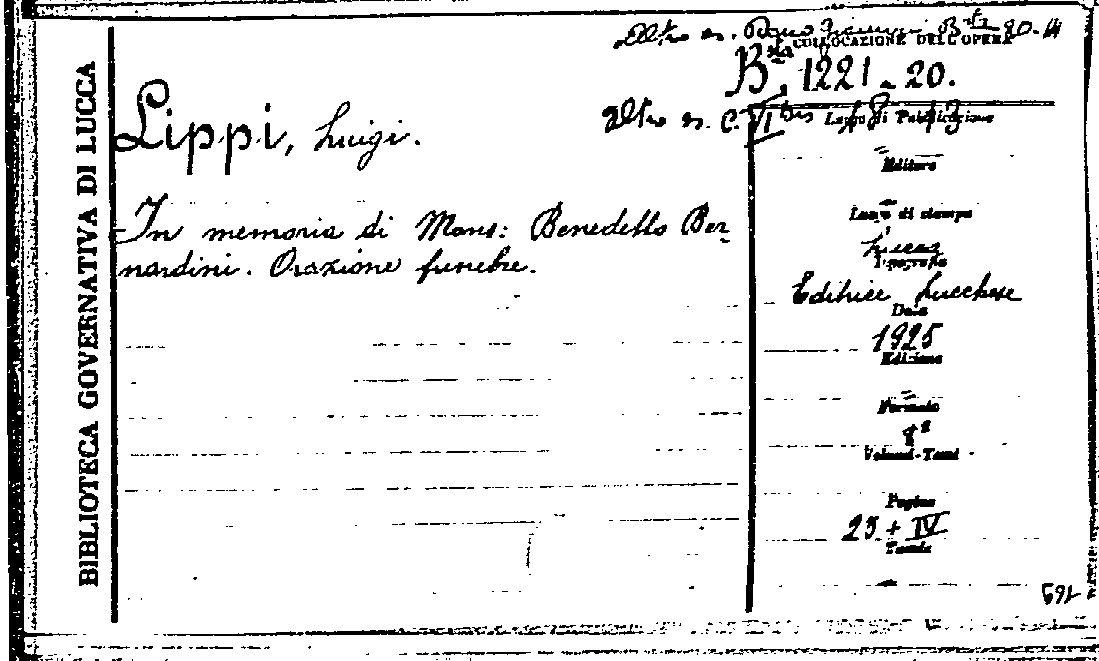 BIBLIOTECA GOVERNATIVA DI LUCCA
Altro es.
COLLOCAZIONE DELL'OPERA
B.ta 1221-20.
altro es. C. VI bis
Lippi, Luigi.
In memoria di Mons: Benedetto Ber-
nardini. Orazione funebre.
Luogo di Pubblicazione
Editore
Luogo di stampa
Lucca
Tipografia
Editrice Lucchese
Data
1925
Edizione
Formato
8°
Volumi-Tomi
Pagine
23 + IV
Tavole